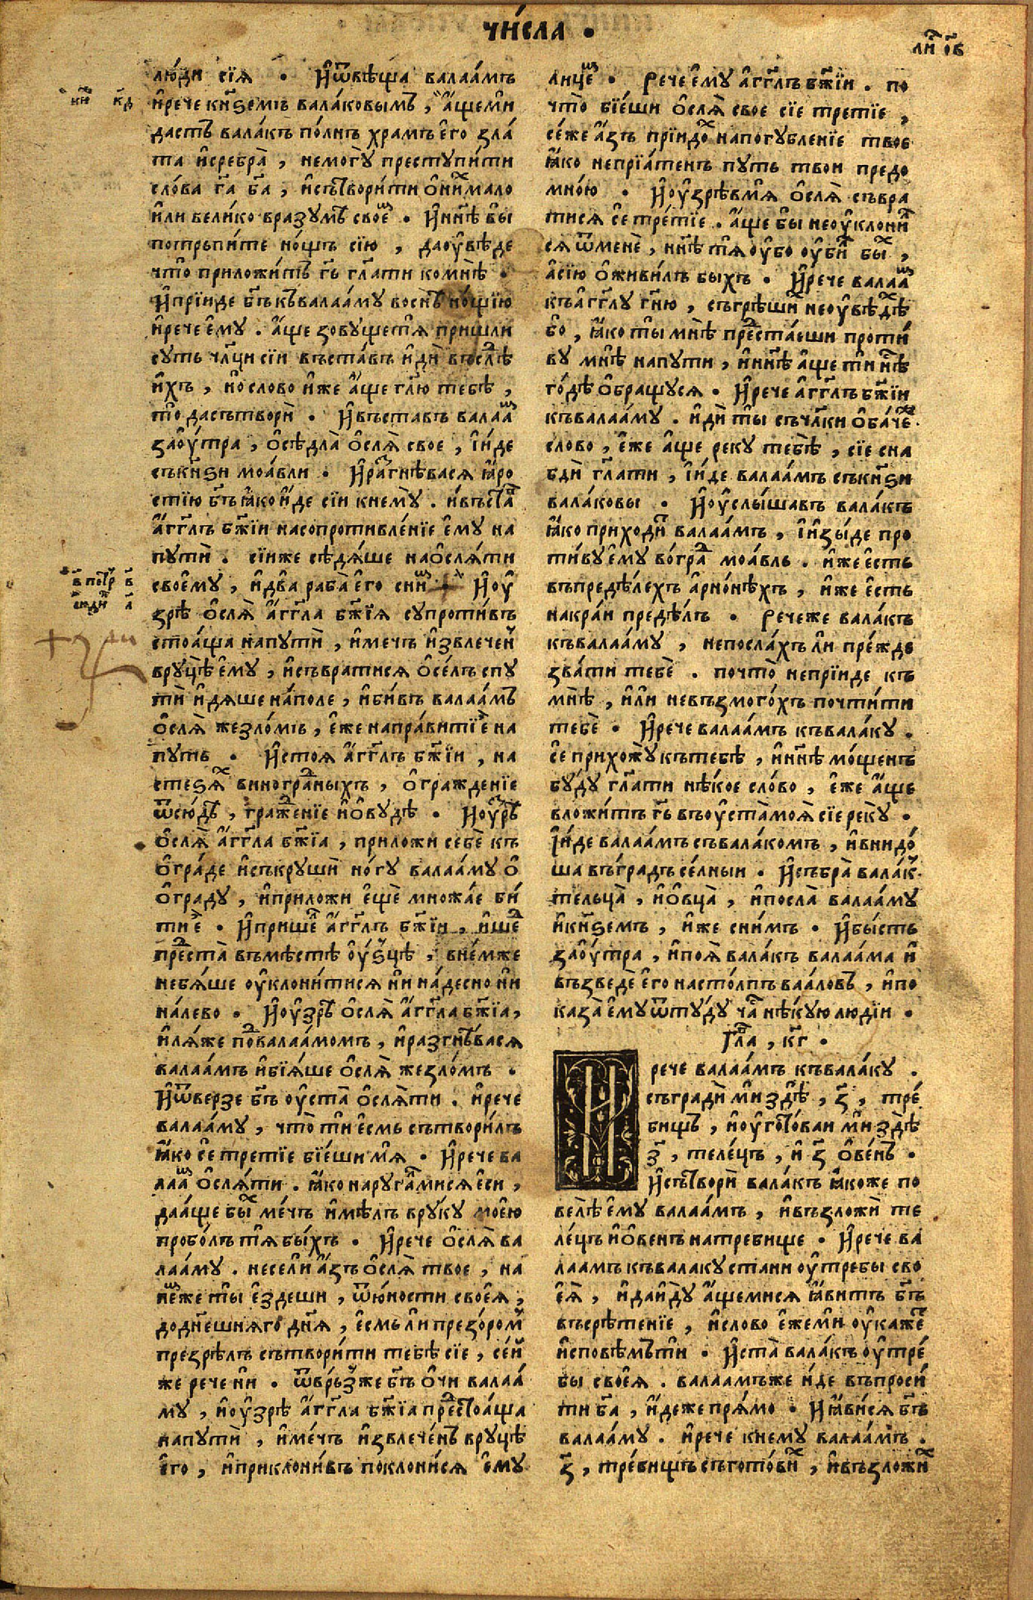 чи́сла •
ли́ ѻ҃в
лю́ди сїѧ̀ • И҆ ѿвѣща валаа́мъ
и҆рече кнѧ҃ѕемъ валаковымъ, а҆щемѝ
дастъ вала́къ по́лнъ храмъ є҆го̀ зла
та и҆сребра̀, немогꙋ̀ престꙋпи́ти
сло́ва гд҃а бг҃а, и҆сътвори́ти о҆ни́х мало
и҆лѝ вели́ко вразꙋмѣ свое́м • И҆ нн҃ѣ вы̀
потръпи́те но́щь сїю̀, даоу҆вѣ́де
что̀ приложи́тъ гд҃ь гл҃ати комнѣ̀ •
И҆ прїи́де бг҃ъ къвалаа́мꙋ воснѣ̀ но́щїю
и҆рече є҆мꙋ̀. а҆ще зовꙋщетѧ̀ пришлѝ
сꙋть чл҃цы сїи въста́въ и҆дѝ въслѣ̀
и҆хъ, и҆о слово и҆же а҆ще гл҃ю тебѣ̀,
то̀ дасътворѝ • И҆ въставъ валаа́м
заоу҆тра, ѡ҆сѣдла̀ о҆слѧ̀ свое, и҆и́де
съкнѧ҃ѕи моа́вли • И҆ ра́згнѣвасѧ ꙗ҆ро
стїю бг҃ъ ꙗ҆ко и҆́де сїи кнемꙋ̀. и҆въста̀
а҆́гг҃лъ бж҃їи насопротивле́нїе є҆мꙋ̀ на
пꙋтѝ. сїиже сѣдѧ́ше наѻ҆слѧ́ти
свое́мꙋ, и҆два̀ раба̀ є҆го̀ сни́м • И҆ оу҆
зрѣ̀ о҆слѧ̀ а҆́гг҃ла бж҃їѧ сꙋпроти́въ
стоѧ́ща напꙋтѝ, и҆мечъ и҆звлечен
врꙋцѣ̀ є҆мꙋ̀, и҆съвратисѧ о҆се́лъ спꙋ
тѝ и҆дѧ́ше на́поле, и҆би́въ валаа́мъ
о҆слѧ̀ жезло́мъ, є҆́же напра́витїе на
пꙋть • И҆ стоѧ̀ а҆́гг҃лъ бж҃їи, на
стеѕѧ́х виногра́дныхъ, о҆гражденїе
ѿсю́дꙋ, гражде́нїе и҆ѻ҆вꙋдѣ̀ • И҆оу҆зрѣ̀
о҆слѧ̀ а҆́гг҃ла бж҃їа, приложи себѐ къ
о҆гра́де и҆съкрꙋши но́гꙋ валаа́мꙋ о҆
о҆гра́дꙋ, и҆приложи є҆щѐ множа́е би́
тиє҆̀ • И҆ прише́д а҆́гг҃лъ бж҃їи, и҆ше́д
преста̀ въмѣстѣ̀ оу҆́ѕцѣ, внемже
небѧ́ше оу҆клони́тисѧ ни на́десно ни
на́лево • И҆ оу҆зрѣ̀ о҆слѧ̀ а҆́гг҃ла бж҃їа,
и҆лѧ́же подвалаа́момъ, и҆разгнѣ́васѧ
валаа́мъ и҆бїѧ́ше о҆слѧ̀ жезло́мъ •
И҆ ѿверзе бг҃ъ оу҆ста̀ о҆слѧ́ти. и҆рече
валаа́мꙋ, что̀ ти̇̀ є҆смь сътвори́лъ
ꙗ҆ко сѐ третїе бїе́ши мѧ̀ • И҆ рече ва
лаа́м о҆слѧ́ти. ꙗ҆ко нарꙋга́ мисѧ є҆сѝ,
даа́ще бы́х ме́чь и҆мѣлъ врꙋкꙋ мое́ю
пробо́лъ тѧ бы́хъ • И҆ рече о҆слѧ̀ ва
лаа́мꙋ. несе́ли а҆зъ о҆слѧ̀ твоѐ, на
не́мже ты̀ є҆́здеши, ѿю́ности своеѧ̀,
додн҃ешнѧ́го дн҃ѧ, є҆смь ли̇ презо́ром
презрѣ́лъ сътвори́ти тебѣ̀ сїе, се́й
же рече нѝ • ѿвръ́зже бг҃ъ о҆́чи валаа́
мꙋ, и҆оу҆зрѣ̀ а҆́гг҃ла бж҃їа предстоѧ́ща
напꙋтѝ, и҆ме́чъ и҆звлече́нъ врꙋцѣ̀
є҆го̀, и҆приклони́въ поклони́сѧ є҆мꙋ
лице́м • Рече є҆мꙋ̀ а҆́гг҃лъ бж҃їи. по
что̀ бїе́ши о҆слѧ̀ свое сїе третїе,
се́же а҆́зъ прїидо́х напогꙋбленїе твое
ꙗ҆ко непрїѧ́тенъ пꙋть твои предо
мно́ю • И҆ оу҆зрѣ́в мѧ̀ о҆слѧ̀ съвра
тисѧ се̂ тре́тїе. а҆́ще бы̀ неоу҆клони
сѧ ѿменѐ, нн҃ѣ тѧ оу҆бо оу҆би́л бы́х,
а҆сїю̀ о҆живи́лъ быхъ • И҆ рече валаа́м
къ а҆́гг҃лꙋ гд҃ню, съгрѣши́х неоу҆вѣ́дѣ
бо, ꙗ҆ко ты̀ мнѣ̀ предста́еши проти́
вꙋ мнѣ̀ напꙋтѝ, и҆нн҃ѣ а҆ще ти̇ нѣ́
го́дѣ о҆бращꙋсѧ • И҆ рече а҆́гг҃лъ бж҃їи
къвалаа́мꙋ. и҆дѝ ты̀ съчл҃ки о҆ба́че
слово, є҆́же а҆ще рекꙋ̀ тебѣ̀, сїе сна
бдѝ гл҃ати, и҆и́де валаа́мъ съкнѧ҃ѕи
валаковы • И҆ оу҆слы́шавъ вала́къ
ꙗ҆ко приходи́т валаа́мъ, и҆и҆зы́де про
ти́вꙋ є҆мꙋ̀ во́град моа́вль. и҆́же є҆сть
въпредѣ́лехъ а҆рно́нѣхъ, и҆́же є҆сть
накра́и предѣ́лъ • Речеже вала́къ
къвалаа́мꙋ, непосла́хъ ли пре́жде
зва́ти тебѐ. почто̀ непрїиде къ
мнѣ̀, и҆лѝ невъзмого́хъ почти́ти
тебѐ • И҆ рече валаа́мъ къвалакꙋ.
сѐ прихождꙋ̀ къ тебѣ̀, и҆нн҃ѣ мо́щенъ
бꙋ́дꙋ гл҃ати нѣ́кое сло́во, є҆́же а҆́ще
вложи́тъ гд҃ь въоу҆ста̀моѧ̀ сїе рекꙋ̀ •
И҆и́де валаа́мъ съвалакомъ, и҆внидо́
ша въгра́дъ се́лныи • И҆ събра̀ валак
тельца̀, и҆ѻ҆вца̀, и҆посла̀ валаа́мꙋ
и҆кнѧ҃ѕемъ, и҆́же сни́мъ • И҆ бы́сть
заоу҆́тра, и҆поѧ̀ вала́къ валаа́ма и҆
възведѐ є҆го̀ насто́лпъ ваа́ловъ, и҆по
каза̀ є҆мꙋ̀ ѿтꙋ́дꙋ ча́ст нѣ́кꙋю лю́дїи •
Глава̀, к҃г •
И рече валаа́мъ къвала́кꙋ.
съградѝ мѝ здѣ̀, з҃, тре́
бищъ, и҆оу҆гото́ваи мѝ здѣ̀
з҃, теле́цъ, и҆ з҃ о҆ве́нъ •
И҆ сътворѝ вала́къ ꙗ҆коже по
велѣ̀ є҆мꙋ̀ валаа́мъ, и҆възложѝ те
ле́цъ и҆ѻ҆ве́нъ натребище • И҆ рече ва
лаа́мъ къвалакꙋ стани оу҆требы сво
є҆ѧ̀, и҆даи҆дꙋ̀ а҆щемисѧ ꙗ҆витъ бг҃ъ
въсрѣтенїе, и҆слово є҆жемѝ оу҆каже
и҆сповѣ́мъ ти • И҆ ста̀ вала́къ оу҆тре́
бы своеѧ̀. валаа́мъже и҆́де въпроси
ти бг҃а, и҆дѣже прѧ́мо • И҆ ꙗ҆ви́сѧ бг҃ъ
валаа́мꙋ. и҆рече кнемꙋ валаа́мъ.
з҃, тре́бищъ съгото́вих, и҆възложи́х